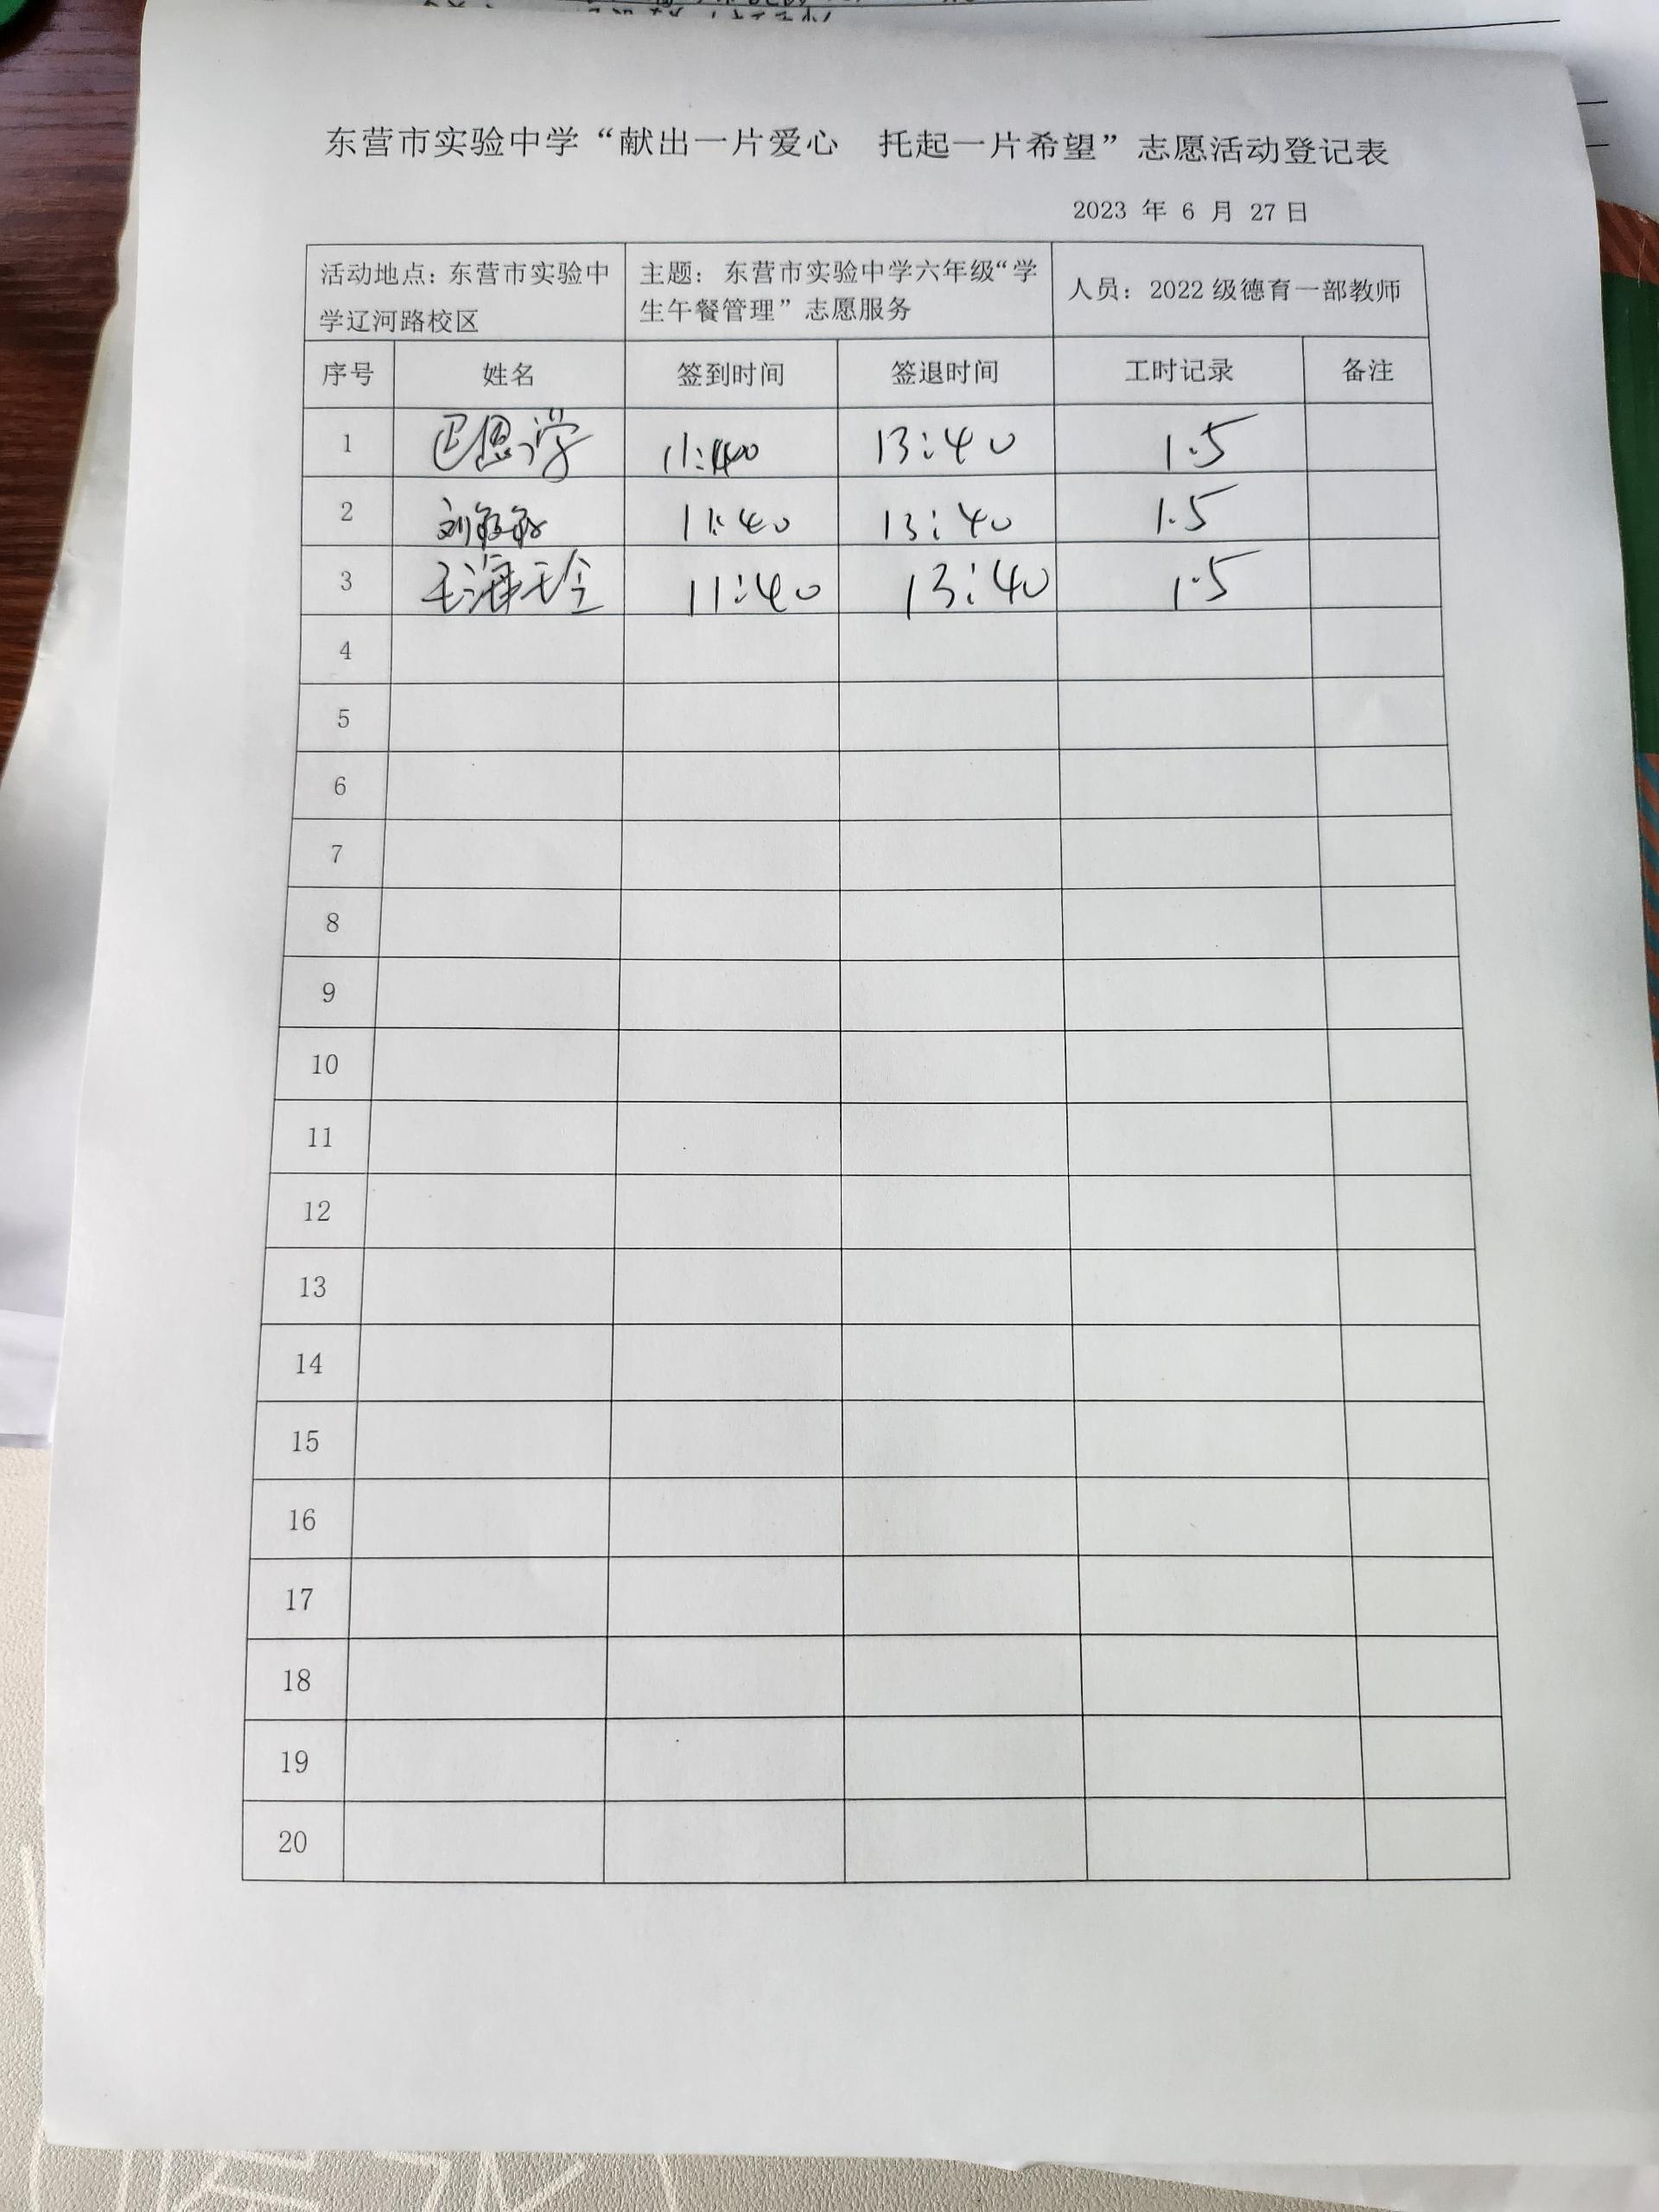 东营市实验中学“献出一片爱心　托起一片希望”志愿活动登记表
2023 年 6 月 27 日
活动地点：东营市实验中学辽河路校区 主题：东营市实验中学六年级“学生午餐管理”志愿服务 人员：2022 级德育一部教师
序号 姓名 签到时间 签退时间 工时记录 备注
1 巴恩学 11:40 13:40 1.5
2 刘敏敏 11:40 13:40 1.5
3 王海玲 11:40 13:40 1.5
4
5
6
7
8
9
10
11
12
13
14
15
16
17
18
19
20